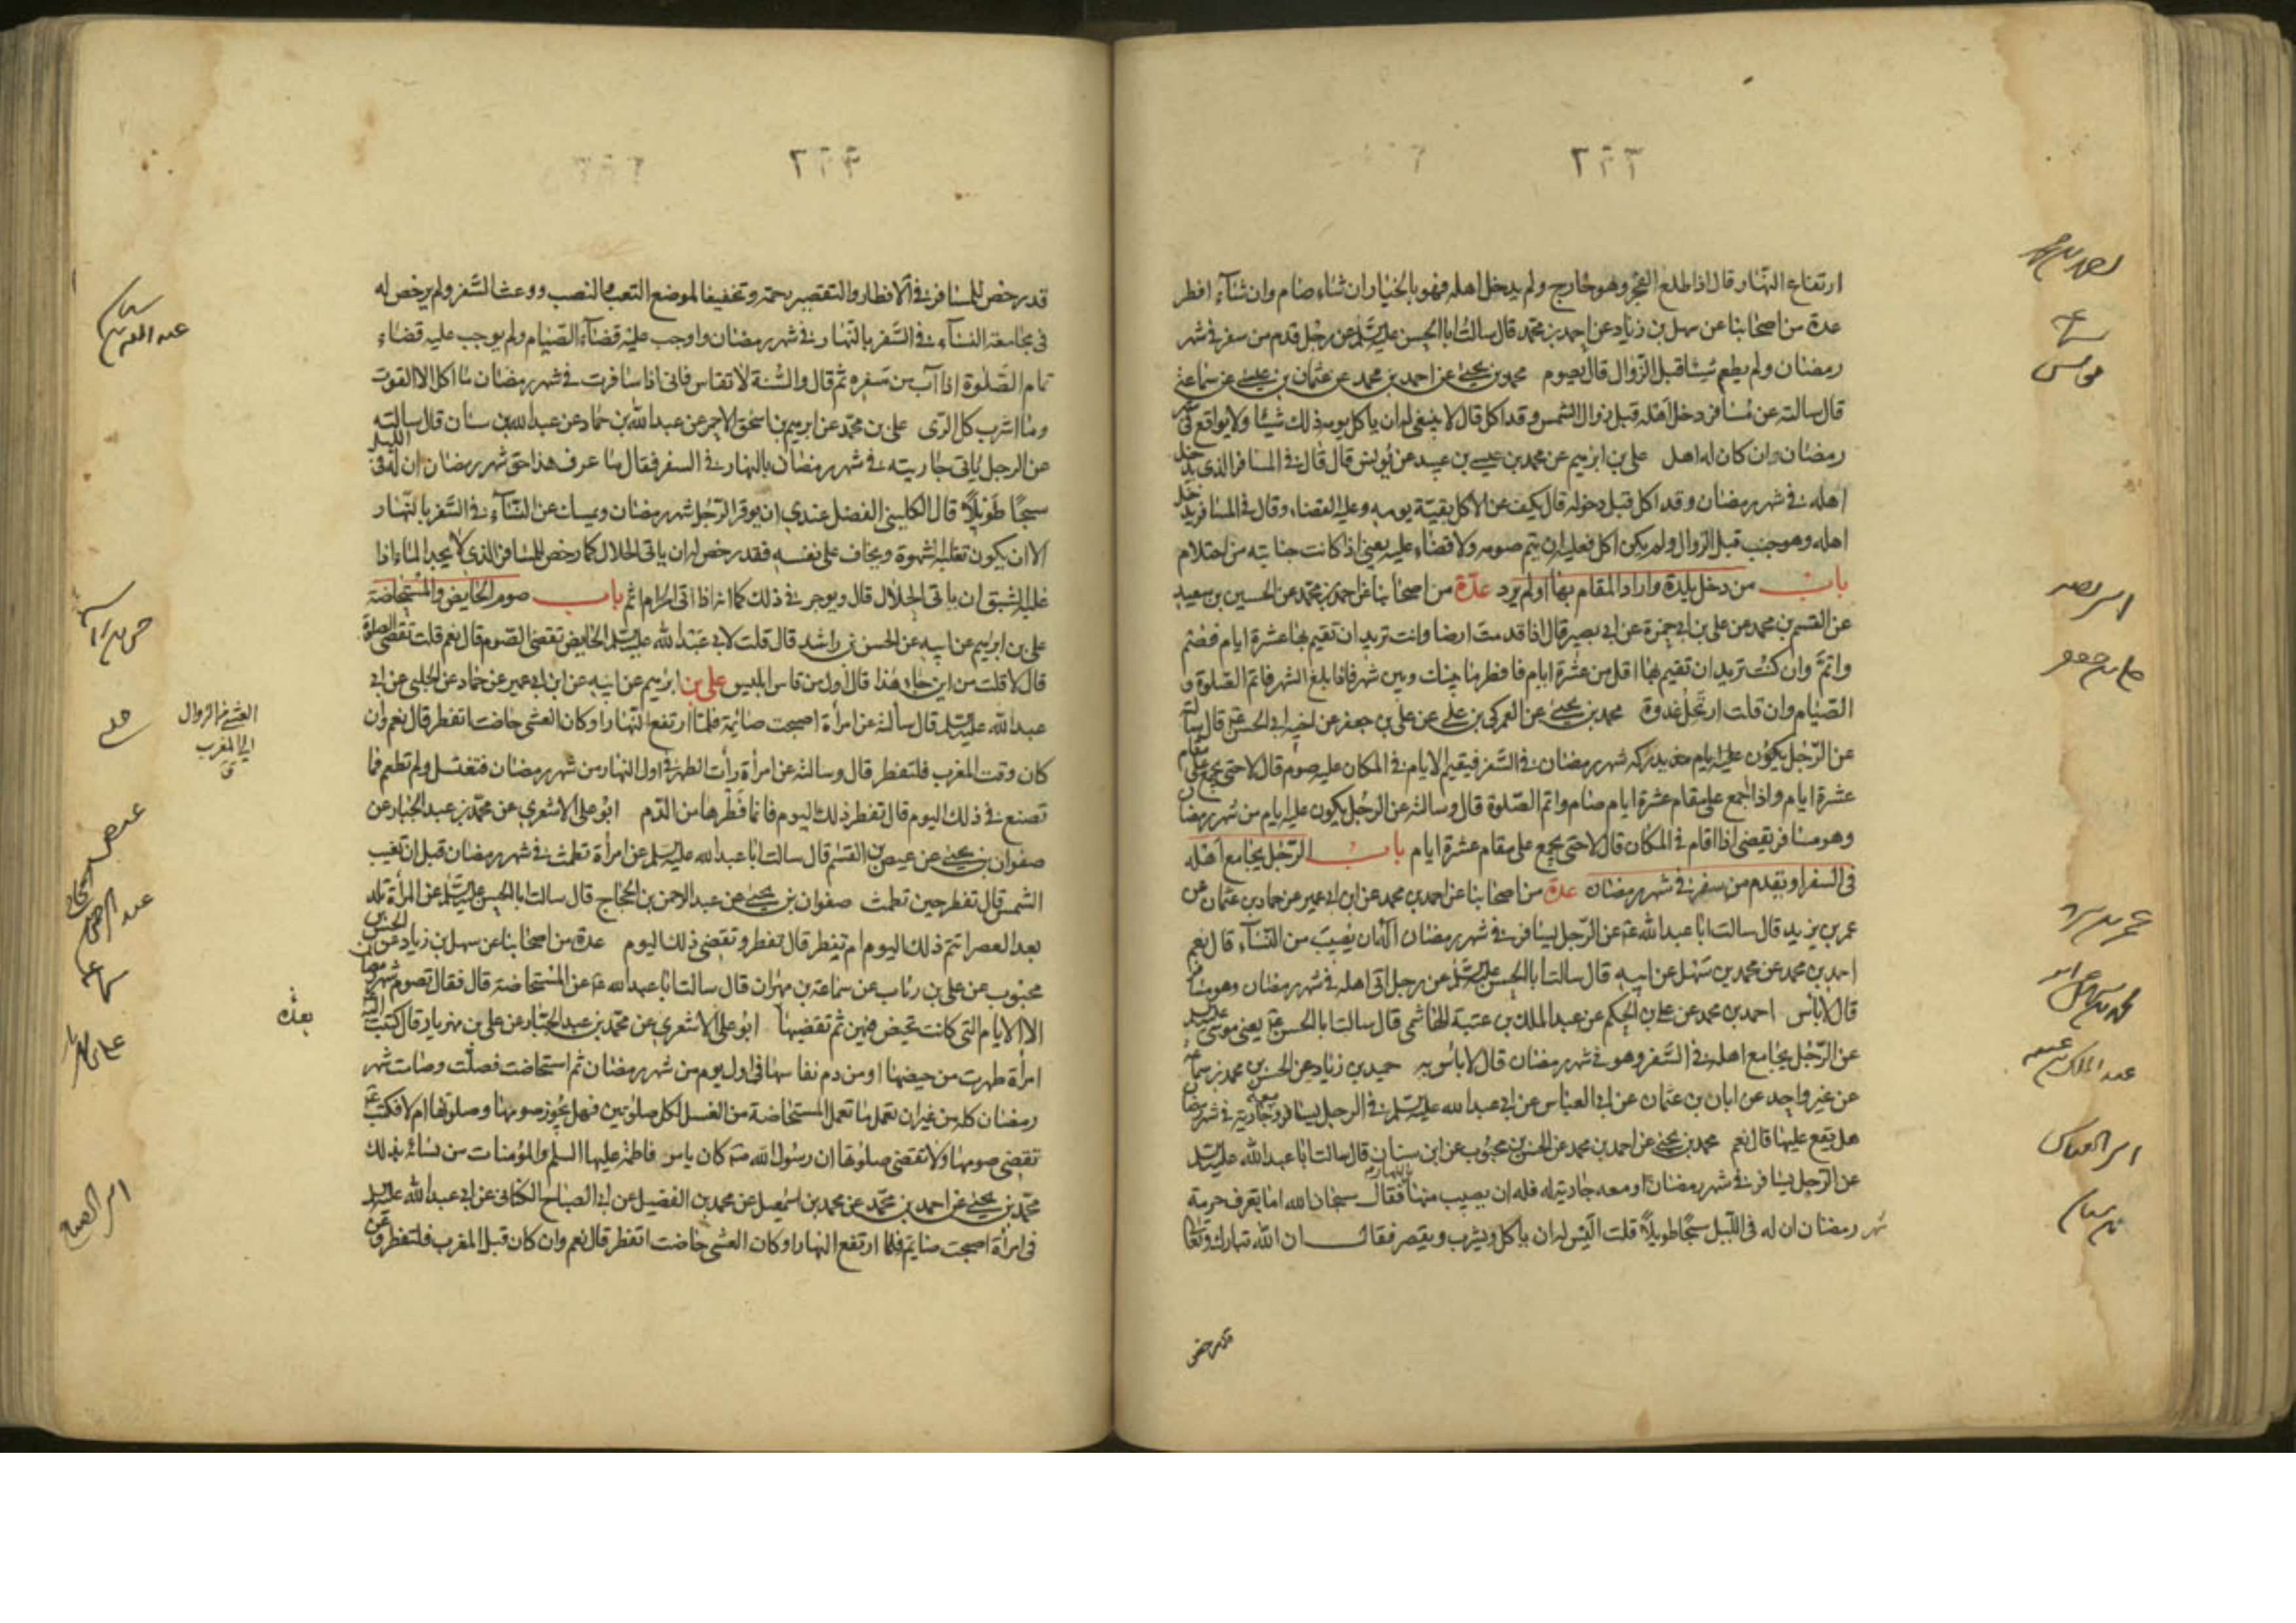 ارتفاع النهار قال اذا طلع الفجر وهو خارج ولم يدخل اهله فهو بالخيار ان شاء صام وان شاء افطر
عدة من اصحابنا عن سهل بن زياد عن احمد بن محمد قال سالت ابا الحسن عليه السلم عن رجل قدم من سفر في شهر
رمضان ولم يطعم شيئا قبل الزوال قال يصوم محمد بن يحيى عن احمد بن محمد عن عثمان بن عيسى عن سماعة
قال سالته عن مسافر دخل اهله قبل زوال الشمس وقد اكل قال لا ينبغي له ان ياكل يومه ذلك شيئا ولا يواقع في شهر
رمضان وان كان له اهل علي بن ابرهيم عن محمد بن عيسى بن عبيد عن يونس قال قال في المسافر الذي يدخل
اهله في شهر رمضان وقد اكل قبل دخوله قال يكف عن الاكل بقية يومه وعليه القضاء وقال في المسافر يدخل
اهله وهو جنب قبل الزوال ولم يكن اكل فعليه ان يتم صومه ولا قضاء عليه يعني اذا كانت جنابته من احتلام
باب من دخل بلدة واراد المقام بها او لم يرد عدة من اصحابنا عن احمد بن محمد عن الحسين بن سعيد
عن القسم بن محمد عن علي بن ابي حمزة عن ابي بصير قال اذا قدمت ارضا وانت تريد ان تقيم بها عشرة ايام فصم
واتم وان كنت تريد ان تقيم بها اقل من عشرة ايام فافطر ما بينك وبين شهر فاذا بلغ الشهر فاتم الصلوة و
الصيام وان قلت ارتحل غدوة محمد بن يحيى عن العمركي بن علي عن علي بن جعفر عن اخيه ابي الحسن قال سالته
عن الرجل يدركه شهر رمضان في السفر فيقيم الايام في المكان عليه صوم قال لا حتى يجمع على مقام
عشرة ايام واذا اجمع على مقام عشرة ايام صام واتم الصلوة قال وسالته عن الرجل يكون عليه ايام من شهر رمضان
وهو مسافر يقضي اذا اقام في المكان قال لا حتى يجمع على مقام عشرة ايام باب الرجل يجامع اهله
في السفر او يقدم من سفر في شهر رمضان عدة من اصحابنا عن احمد بن محمد عن ابن ابي عمير عن حماد بن عثمان عن
عمر بن يزيد قال سالت ابا عبد الله ع عن الرجل يسافر في شهر رمضان اله ان يصيب من النساء قال نعم
احمد بن محمد عن محمد بن سهل عن ابيه قال سالت ابا الحسن عليه السلم عن رجل اتى اهله في شهر رمضان وهو مسافر
قال لا باس احمد بن محمد عن علي بن الحكم عن عبد الملك بن عتبة الهاشمي قال سالت ابا الحسن ع يعني موسى عليه السلم
عن الرجل يجامع اهله في السفر وهو في شهر رمضان قال لا باس به حميد بن زياد عن الحسن بن محمد بن سماعة
عن غير واحد عن ابان بن عثمان عن ابي العباس عن ابي عبد الله عليه السلم في الرجل يسافر ومعه جارية في شهر رمضان
هل يقع عليها قال نعم محمد بن يحيى عن احمد بن محمد عن الحسن بن محبوب عن ابن سنان قال سالت ابا عبد الله عليه السلم
عن الرجل يسافر في شهر رمضان ومعه جارية له فله ان يصيب منها بالنهار فقال سبحان الله اما يعرف حرمة
شهر رمضان ان له في الليل سبحا طويلا قلت اليس له ان ياكل ويشرب ويقصر فقال ان الله تبارك وتعالى
قد رخص
ابو بصير
علي بن جعفر
ابن سنان
قد رخص للمسافر في الافطار والتقصير رحمة وتخفيفا لموضع التعب والنصب ووعث السفر ولم يرخص له
في مجامعة النساء في السفر بالنهار في شهر رمضان واوجب عليه قضاء الصيام ولم يوجب عليه قضاء
تمام الصلوة اذا آب من سفره ثم قال والسنة لا تقاس فاني اذا سافرت في شهر رمضان ما اكل الا القوت
وما اشرب كل الري علي بن محمد عن ابرهيم بن اسحق الاحمر عن عبد الله بن حماد عن عبد الله بن سنان قال سالته
عن الرجل ياتي جاريته في شهر رمضان بالنهار في السفر فقال ما عرف هذا حق شهر رمضان ان له في الليل
سبحا طويلا قال الكليني الفضل عندي ان يوقر الرجل شهر رمضان ويمسك عن النساء في السفر بالنهار
الا ان يكون تغلبه الشهوة ويخاف على نفسه فقد رخص له ان ياتي الحلال كما رخص للمسافر الذي لا يجد الماء اذا
غلبه الشبق ان ياتي الحلال قال ويوجر في ذلك كما انه اذا اتى الحرام اثم باب صوم الحايض والمستحاضة
علي بن ابرهيم عن ابيه عن الحسن بن راشد قال قلت لابي عبد الله عليه السلم الحايض تقضي الصوم قال نعم قلت تقضي الصلوة
قال لا قلت من اين جاء هذا قال اول من قاس ابليس علي بن ابرهيم عن ابيه عن ابن ابي عمير عن حماد عن الحلبي عن ابي
عبد الله عليه السلم قال سالته عن امرأة اصبحت صائمة فلما ارتفع النهار او كان العشي حاضت اتفطر قال نعم وان
كان وقت المغرب فلتفطر قال وسالته عن امرأة رأت الطهر في اول النهار من شهر رمضان فتغتسل ولم تطعم فما
تصنع في ذلك اليوم قال تفطر ذلك اليوم فانما فطرها من الدم ابو علي الاشعري عن محمد بن عبد الجبار عن
صفوان بن يحيى عن عيص بن القسم قال سالت ابا عبد الله عليه السلم عن امرأة تطمث في شهر رمضان قبل ان تغيب
الشمس قال تفطر حين تطمث صفوان بن يحيى عن عبد الرحمن بن الحجاج قال سالت ابا الحسن عليه السلم عن المرأة تلد
بعد العصر اتتم ذلك اليوم ام تفطر قال تفطر وتقضي ذلك اليوم عدة من اصحابنا عن سهل بن زياد عن الحسن بن
محبوب عن علي بن رئاب عن سماعة بن مهران قال سالت ابا عبد الله ع عن المستحاضة قال فقال تصوم شهر رمضان
الا الايام التي كانت تحيض فيهن ثم تقضيها ابو علي الاشعري عن محمد بن عبد الجبار عن علي بن مهزيار قال كتبت اليه
امرأة طهرت من حيضها او من دم نفاسها في اول يوم من شهر رمضان ثم استحاضت فصلت وصامت شهر
رمضان كله من غير ان تعمل ما تعمل المستحاضة من الغسل لكل صلوتين فهل يجوز صومها وصلوتها ام لا فكتب ع
تقضي صومها ولا تقضي صلوتها ان رسول الله ص كان يامر فاطمة عليها السلم والمؤمنات من نسائه بذلك
محمد بن يحيى عن احمد بن محمد عن محمد بن اسمعيل عن محمد بن الفضيل عن ابي الصباح الكناني عن ابي عبد الله عليه السلم
في امرأة اصبحت صايمة فلما ارتفع النهار او كان العشي حاضت اتفطر قال نعم وان كان قبل المغرب فلتفطر وعن
العشي من الزوال
الى المغرب
ق
بعده
سماعة
ابو الصباح